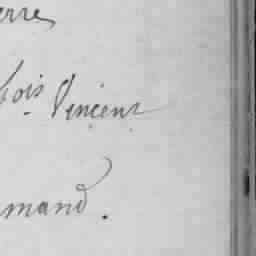 erre
bois Vincent
mand.